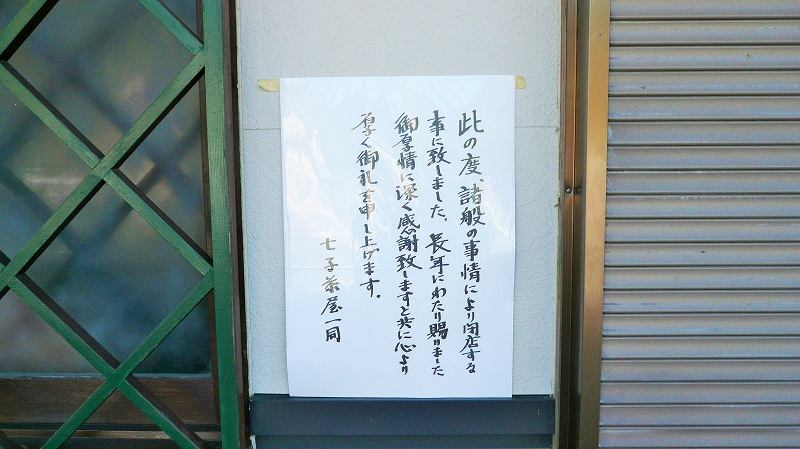 此の度、諸般の事情により閉店する
事に致しました、長年にわたり賜りました
御厚情に深く感謝致しますと共に心より
厚く御礼を申し上げます。
七子茶屋一同